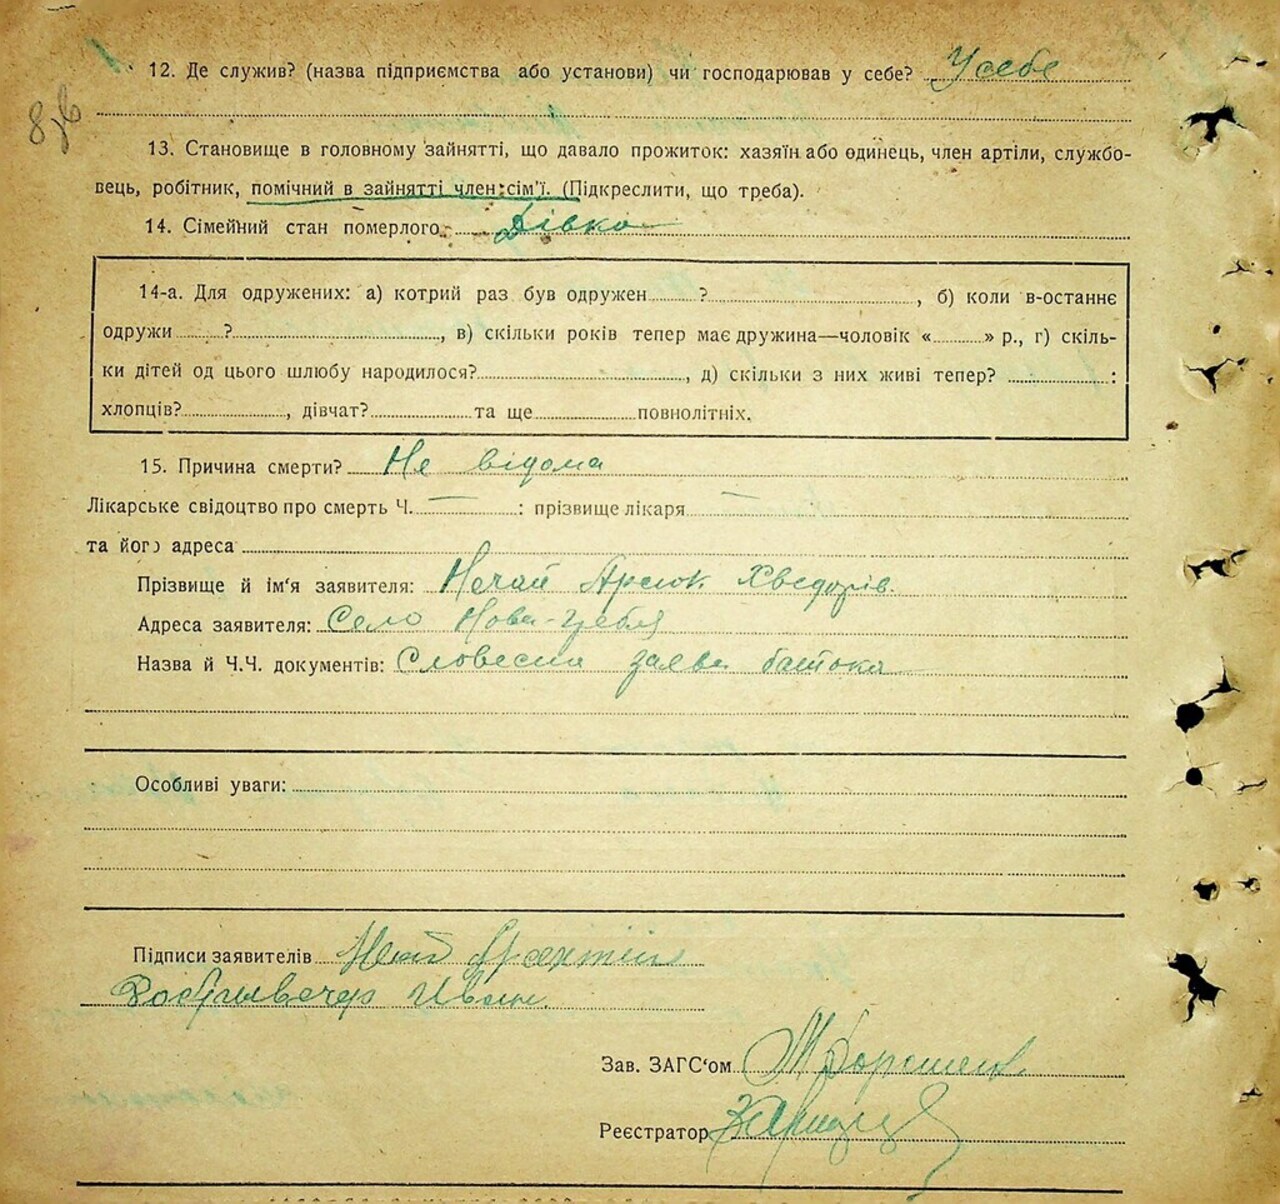 12. Де служив? (назва підприємства або установи) чи господарював у себе? У себе
13. Становище в головному зайнятті, що давало прожиток: хазяїн або одинець, член артіли, службо-
вець, робітник, помічний в зайнятті член сім'ї. (Підкреслити, що треба).
14. Сімейний стан померлого Дівка
14-а. Для одружених: а) котрий раз був одружен ?, б) коли в-останнє
одружи ?, в) скільки років тепер має дружина—чоловік « » р., г) скіль-
ки дітей од цього шлюбу народилося?, д) скільки з них живі тепер? :
хлопців?, дівчат? та ще повнолітніх.
15. Причина смерти? Не відома
Лікарське свідоцтво про смерть Ч. — : прізвище лікаря —
та його адреса
Прізвище й ім'я заявителя: Нечай Арсюк Хведорів.
Адреса заявителя: Село Нова-Гребля
Назва й Ч.Ч. документів: Словесна заява батька
Особливі уваги:
Підписи заявителів
Іван
Зав. ЗАГС'ом
Реєстратор